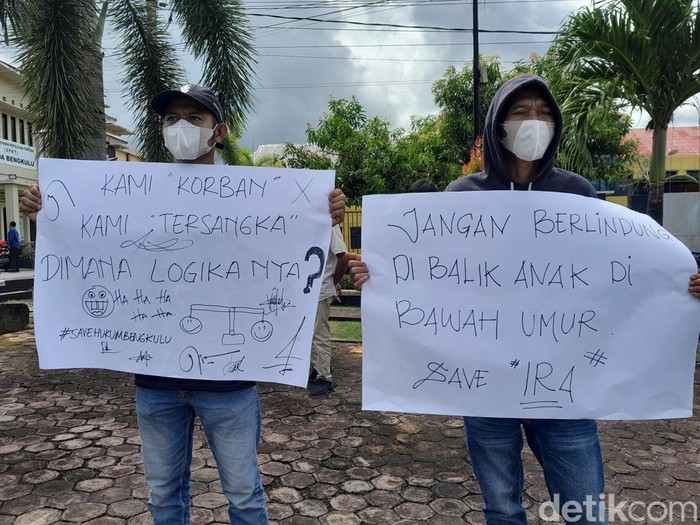 (SPKT)
DA BENGKULU
KAMI "KORBAN" X
KAMI "TERSANGKA"
DIMANA LOGIKA NYA?
HA HA HA
HA HA
#SAVEHUKUMBENGKULU
JANGAN BERLINDUNG
DI BALIK ANAK DI
BAWAH UMUR.
SAVE "IRA"
#
detikcom